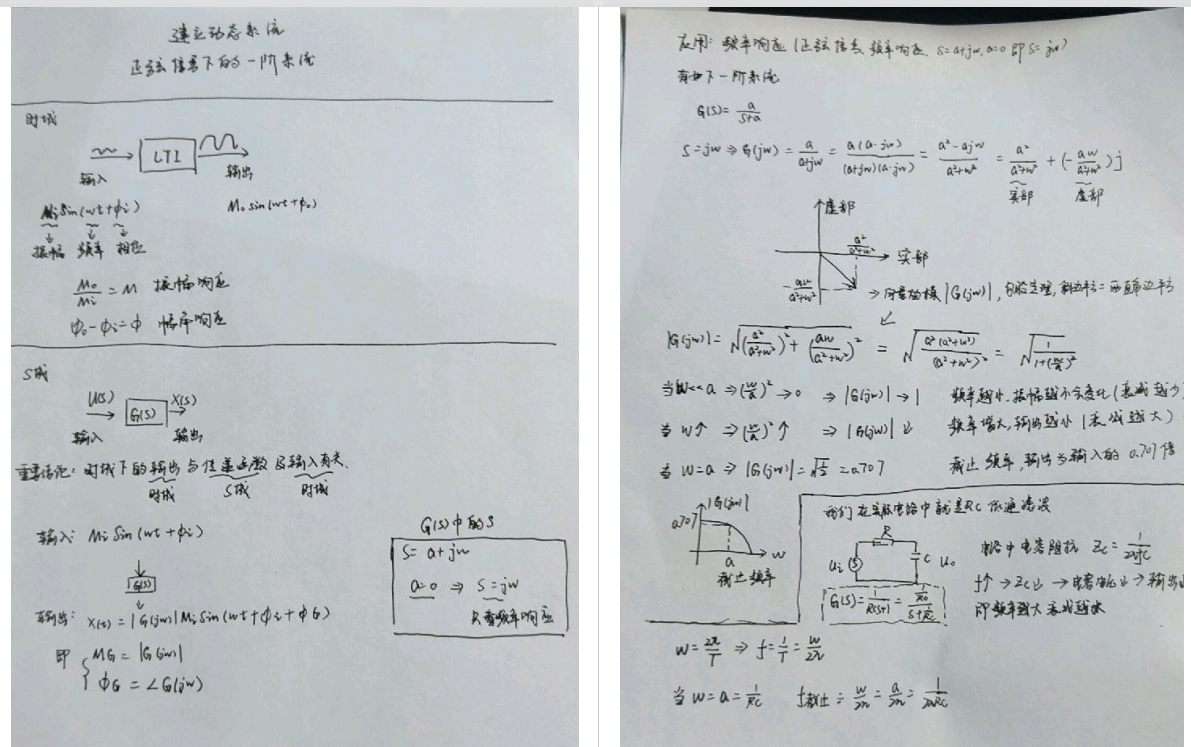 建立动态系统
正弦信号下的一阶系统
时域
LTI
输入
输出
Mi Sin(wt+φi)
Mo sin(wt+φo)
振幅 频率 相位
Mo/Mi = M 振幅响应
φo-φi=φ 幅角响应
S域
U(S)
G(S)
X(S)
输入
输出
重要结论: 时域下的输出与传递函数及输入有关.
时域
S域
时域
输入: Mi Sin(wt+φi)
G(S)
输出: X(t)=|G(jw)|Mi Sin(wt+φi+φG)
即 { MG = |G(jw)|
φG = ∠G(jw)
G(S)中的S
S= a+jw
a=0 ⇒ S=jw
只看频率响应
应用: 频率响应 (正弦信号, 频率响应. S=a+jw, a=0 即 S=jw)
有如下一阶系统
G(S)= a/(S+a)
S=jw ⇒ G(jw) = a/(a+jw) = a(a-jw)/((a+jw)(a-jw)) = (a²-ajw)/(a²+w²) = a²/(a²+w²) + (-aw/(a²+w²))j
实部
虚部
虚部
a²/(a²+w²)
实部
-aw/(a²+w²)
⇒ 向量的模|G(jw)|, 勾股定理, 斜边平方=两直角边平方
|G(jw)| = √((a²/(a²+w²))²+(aw/(a²+w²))²) = √(a²(a²+w²)/(a²+w²)²) = √(1/(1+(w/a)²))
当w<<a ⇒ (w/a)²→0 ⇒ |G(jw)|→1 频率越小, 振幅越不会变化(衰减越少)
当 w↑ ⇒ (w/a)²↑ ⇒ |G(jw)|↓ 频率增大, 输出越小 (衰减越大)
当 w=a ⇒ |G(jw)|=√(1/2)=0.707 截止频率, 输出为输入的 0.707倍
|G(jw)|
0.707
a
w
截止频率
我们在实际电路中就是RC低通滤波
R
Ui
C
Uo
G(S)= 1/(RCS+1) = (1/RC)/(S+1/RC)
电路中电容阻抗 Zc = 1/(2πfC)
f↑ → Zc↓ → 电容 ↓ → 输出↓
即频率越大衰减越大
w = 2π/T ⇒ f = 1/T = w/2π
当 w=a= 1/RC f截止 = w/2π = a/2π = 1/2πRC